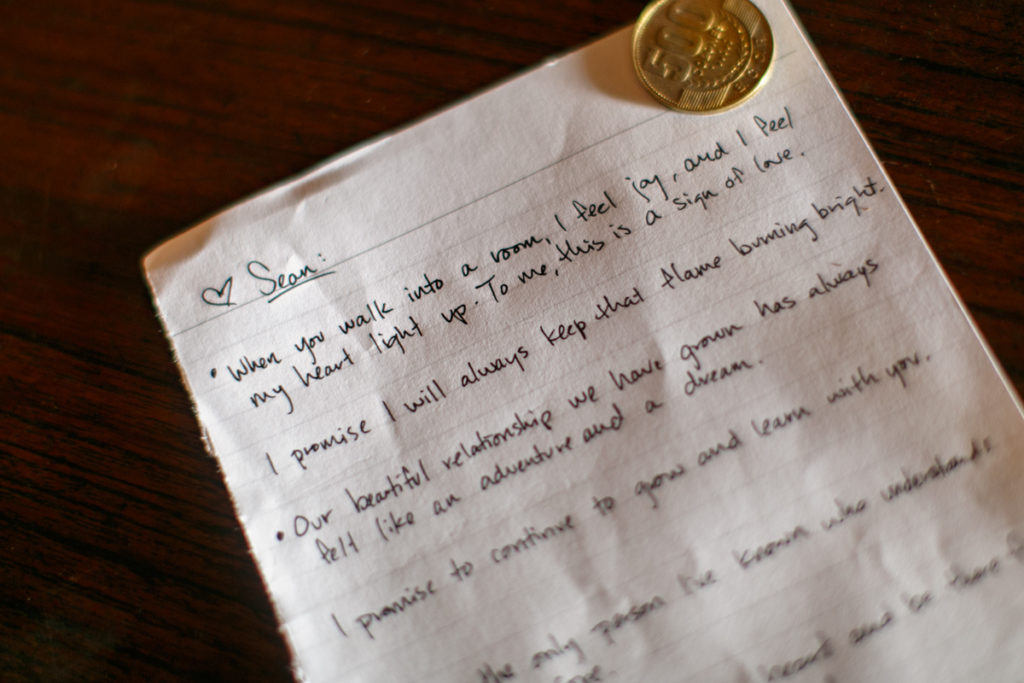 500
♡ Sean:
• When you walk into a room, I feel joy, and I feel
my heart light up. To me, this is a sign of love.
I promise I will always keep that flame burning bright.
• Our beautiful relationship we have grown has always
felt like an adventure and a dream.
I promise to continue to grow and learn with you.
the only person I've known who understands
heart and be there